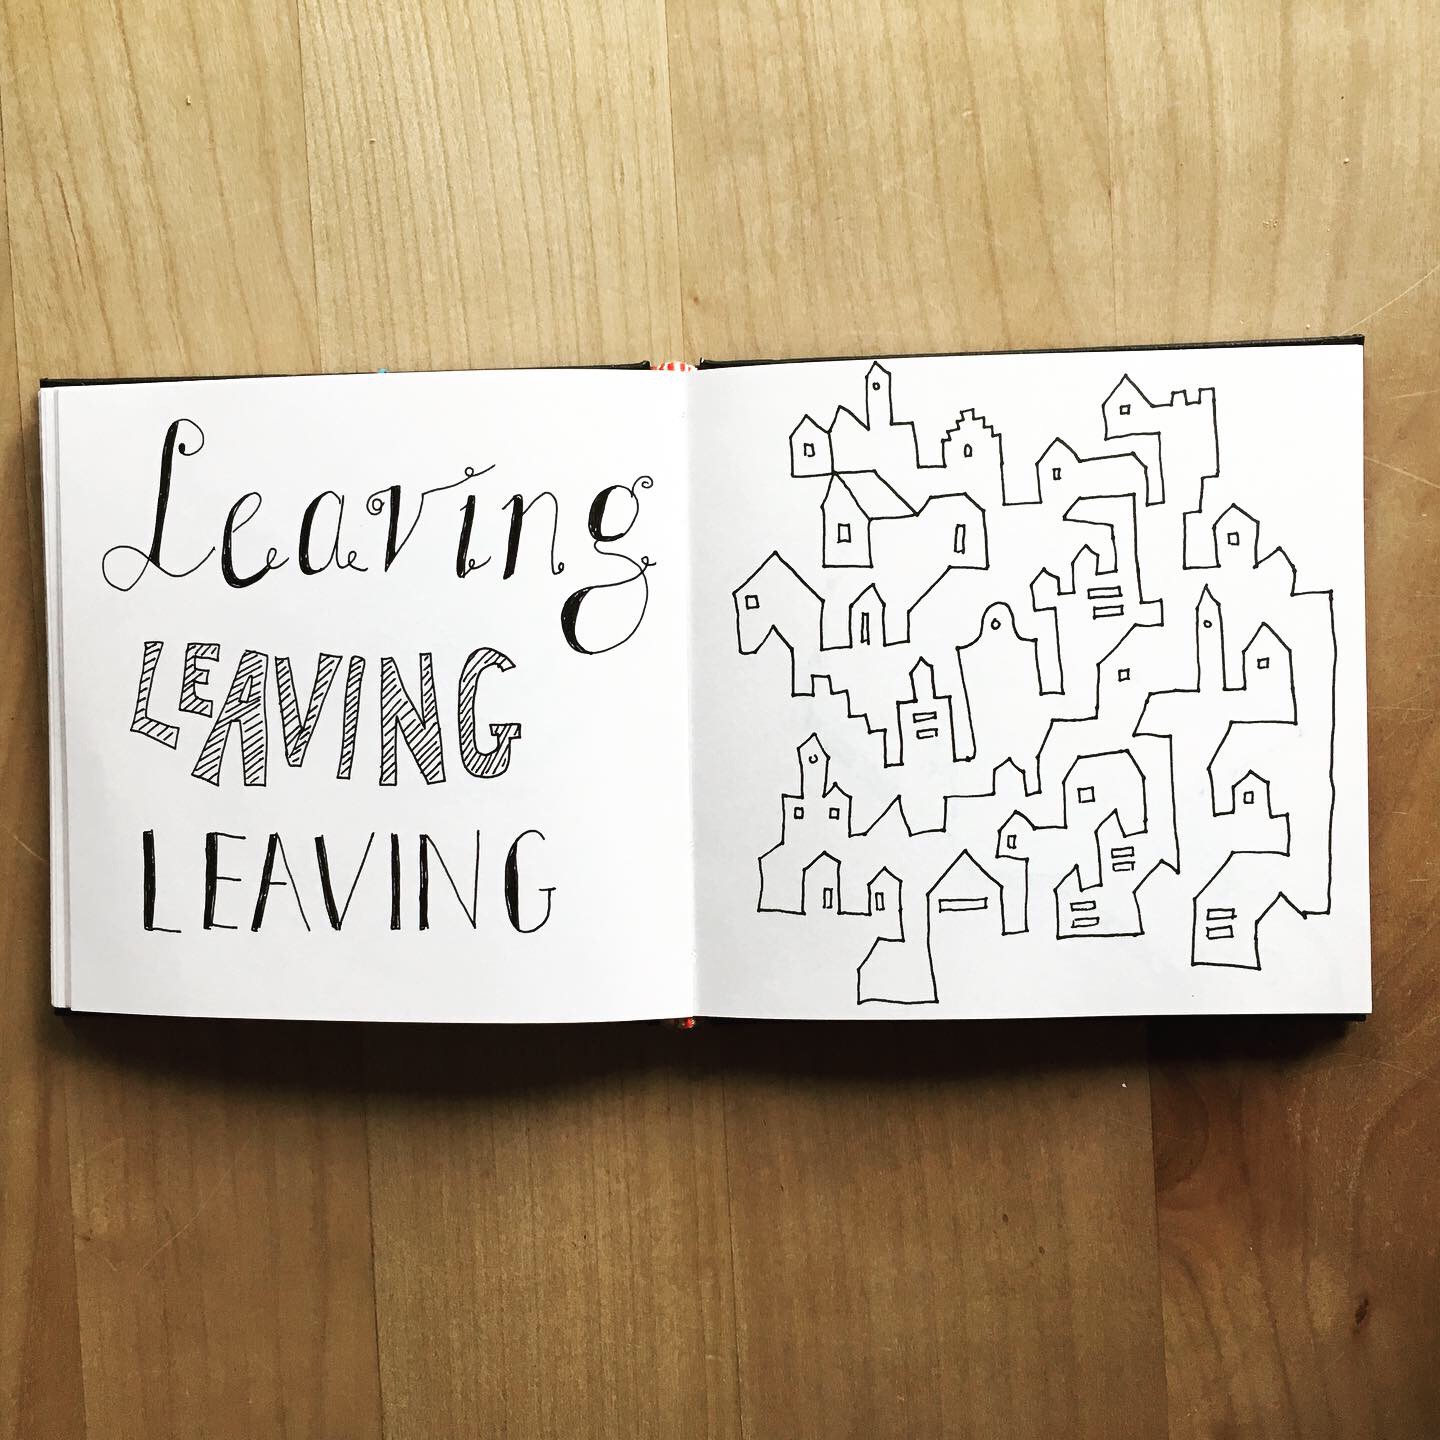 Leaving
LEAVING
LEAVING